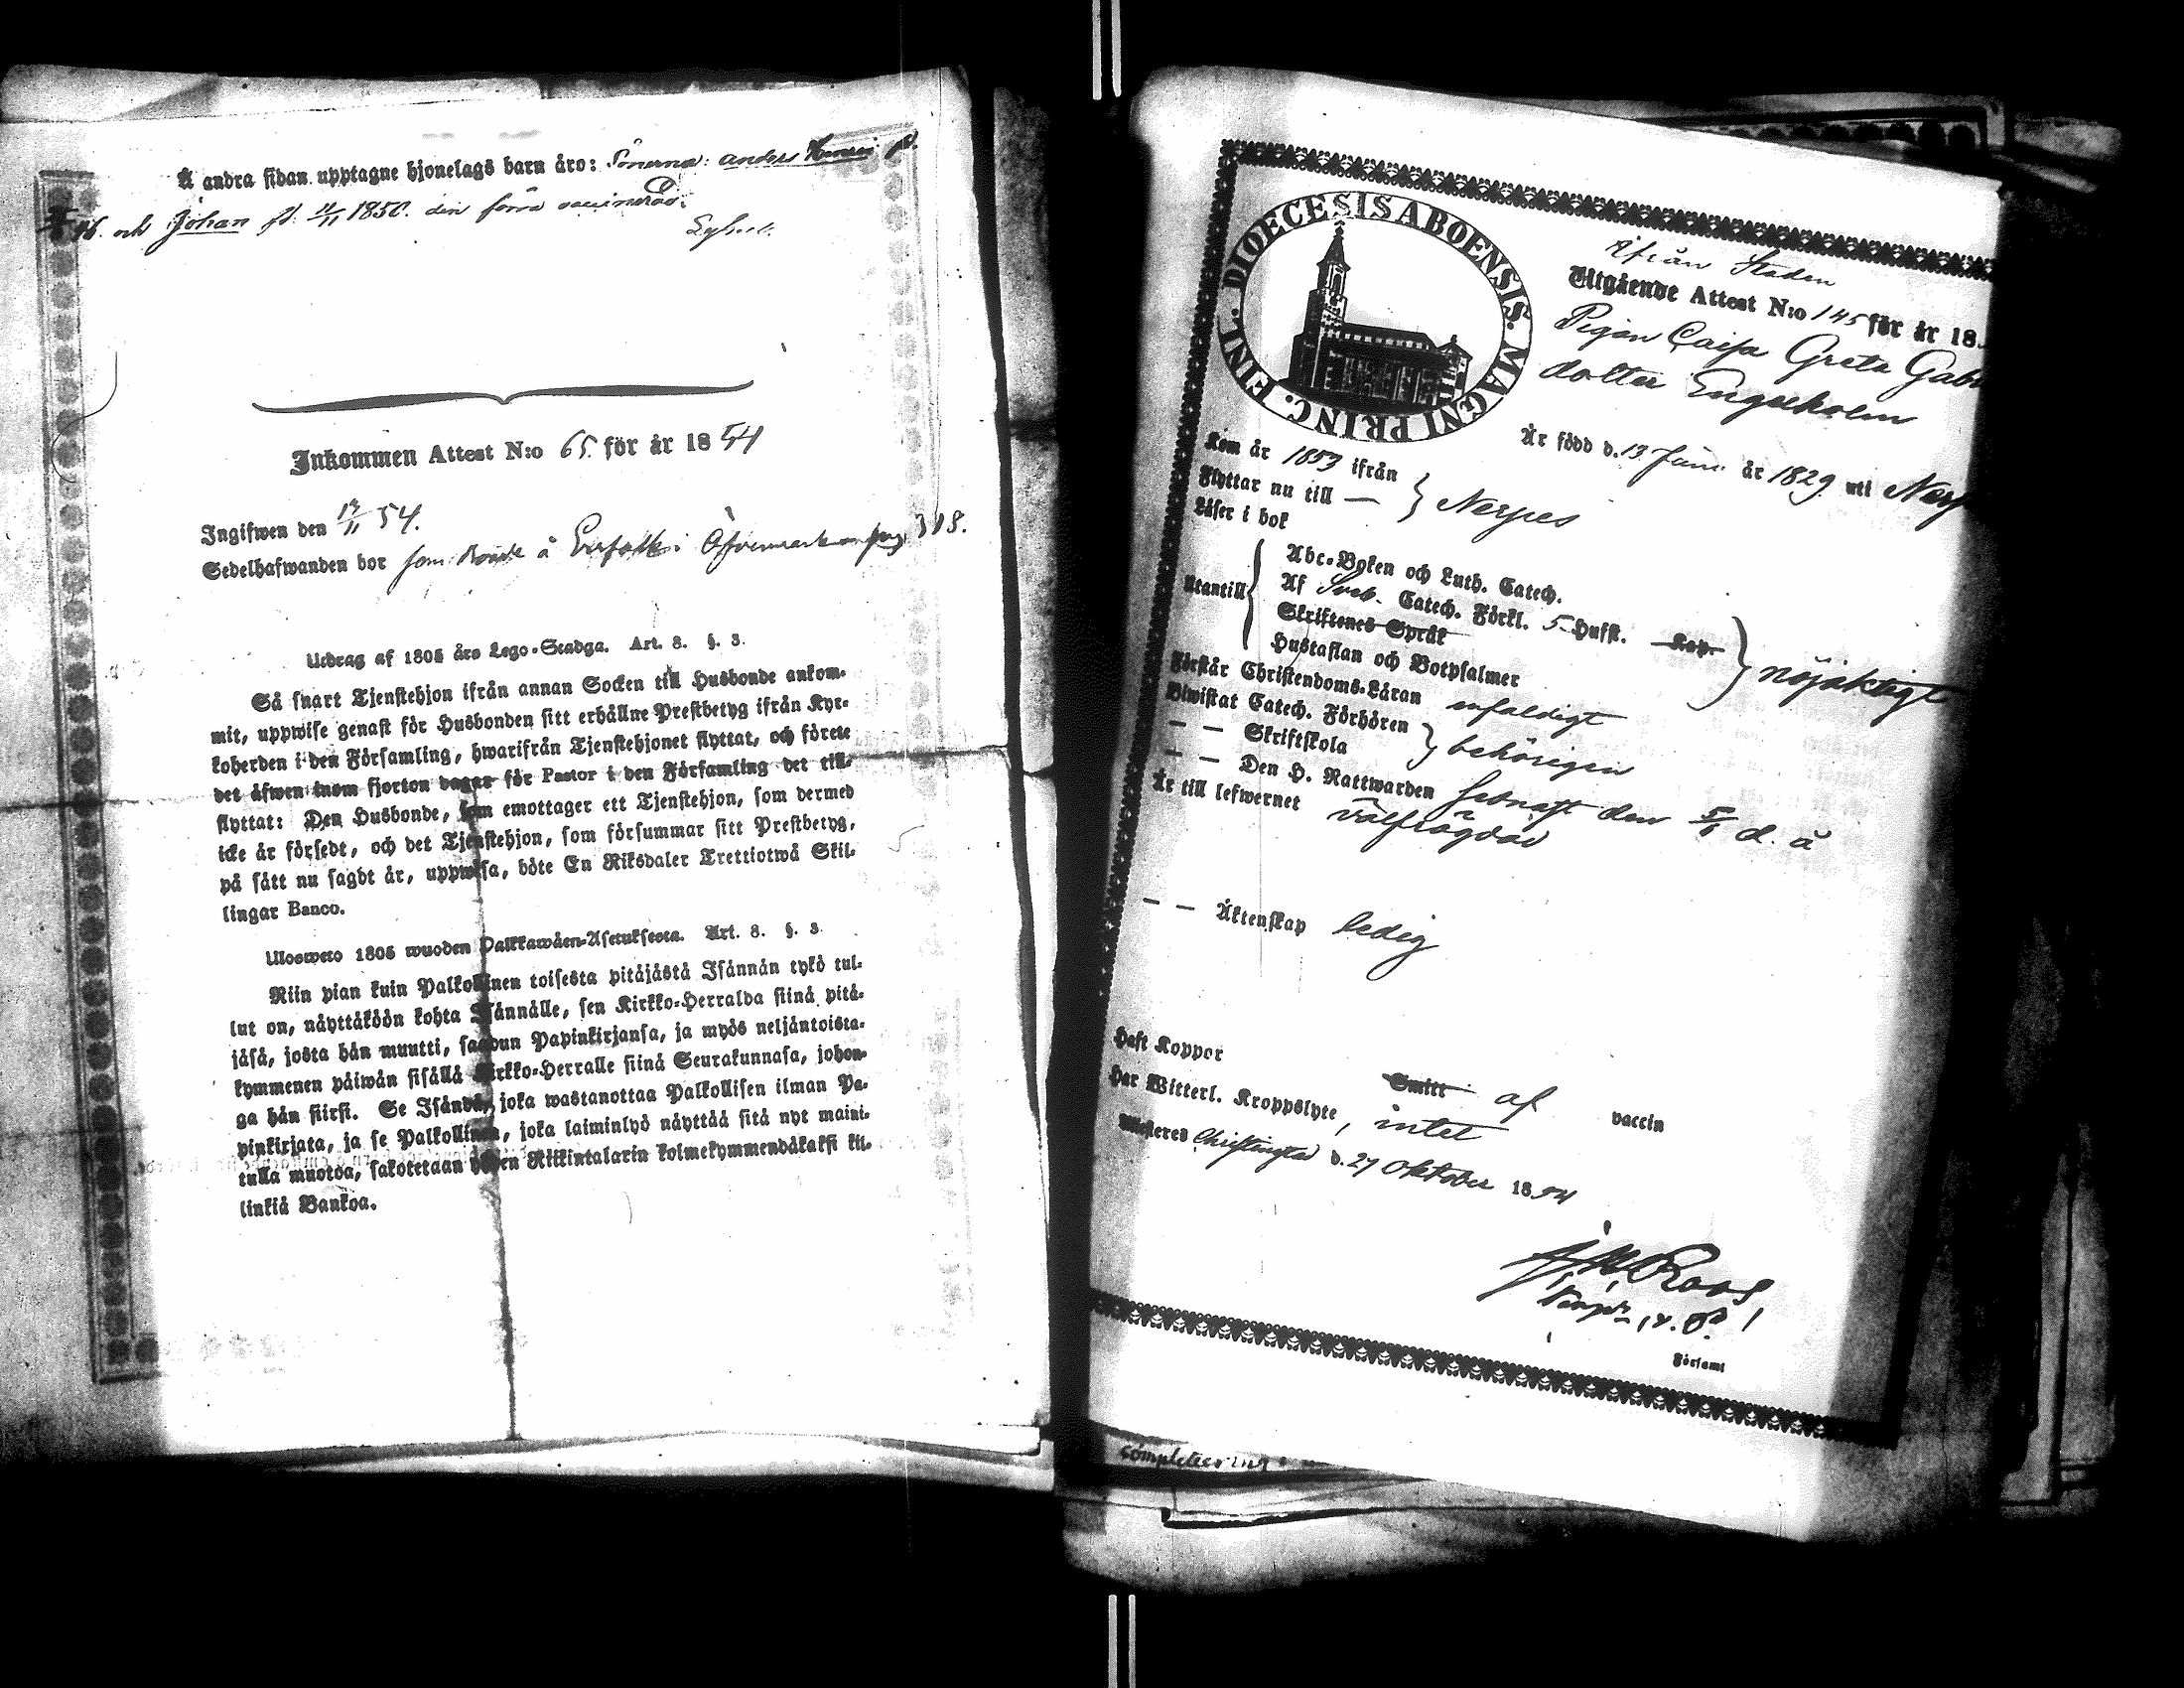 Å andra sidan upptagne hjonelags barn äro: Sönerna: Anders Henric fd.
46. och Johan fd. 11/11 1850. den förra vaccinerad.
Inkommen Attest N:o 65. för år 1854
Ingifwen den 12/11 54.
Sedelhafwanden bor som Bonde å i Öfvermark pag 318.
Utdrag af 1805 års Lego-Stadga. Art. 8. §. 3.
Så snart Tjenstehjon ifrån annan Socken till Husbonde ankom-
mit, uppwise genast för Husbonden sitt erhållne Prestbetyg ifrån Kyr-
koherden i den Församling, hwarifrån Tjenstehjonet flyttat, och förete
det äfwen inom fjorton dagar för Pastor i den Församling det till-
flyttat: Den Husbonde, som emottager ett Tjenstehjon, som dermed
icke är försedt, och det Tjenstehjon, som försummar sitt Prestbetyg,
på sätt nu sagdt är, uppwisa, böte En Riksdaler Trettiotwå Skil-
lingar Banco.
Ulosweto 1805 wuoden Palkkawäen-Asetuksesta. Art. 8. §. 3.
Niin pian kuin Palkollinen toisesta pitäjästä Isännän tykö tul-
lut on, näyttäköön kohta Isännälle, sen Kirkko-Herralda siinä pitä-
jäsä, josta hän muutti, saadun Papinkirjansa, ja myös neljäntoista-
kymmenen päiwän sisällä Kirkko-Herralle siinä Seurakunnasa, johon-
ga hän siirsi. Se Isändä, joka wastanottaa Palkollisen ilman Pa-
pinkirjata, ja se Palkollinen, joka laiminlyö näyttää sitä nyt maini-
tulla muotoa, sakotetaan yhden Riikintalarin kolmekymmendäkaksi kil-
linkiä Bankoa.
FINL. DIOECESIS ABOENSIS. MAGNI PRINC.
Ifrån Staden
Utgående Attest N:o 145 för år 18
Pigan Caisa Greta Gab
dotter Engelholm
Är född d. 13 Juni år 1829. uti Nerp
Kom år 1853 ifrån
Flyttar nu till — } Nerpes
Läser i bok
Utantill
Abc-Boken och Luth. Catech.
Af Sveb. Catech. Förkl. 5 Hufst. Kap.
Skriftenes Språk
Hustaflan och Botpsalmer
nöjaktigt
Förstår Christendoms-Läran enfaldigt
Biwistat Catech. Förhören
— — Skriftskola } behörigen
— — Den H. Nattwarden sednast den 5/6 d. å
Är till lefwernet välfrägdad
— — Äktenskap ledig
Haft Koppor Smitt af vaccin
Har Witterl. Kroppslyte, intet
Attesteres Christinestad d. 27 Oktober 1854
Roos
Församl
completeering